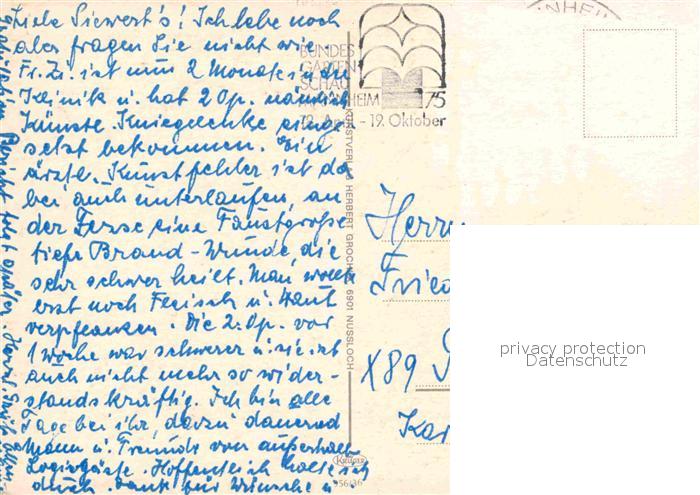 Liebe Siewert's! Ich lebe noch
aber fragen Sie nicht wie
Fr. Zi. ist nun 2 Monate in der
Klinik u. hat 2 Op. nämlich
Künstl. Kniegelenke einge-
setzt bekommen. Ein
ärztl. Kunstfehler ist da
bei auch unterlaufen, an
der Ferse eine Faustgroße
tiefe Brand-Wunde, die
sehr schwer heilt. Man wollte
erst noch Fleisch u. Haut
verpflanzen. Die 2. Op. vor
1 Woche war schwerer u. sie ist
auch nicht mehr so wider-
standskräftig. Ich bin alle
Tage bei ihr, dazu dauernd
Mann u. Freunde von außerhalb
Logiergäste. Hoffentlich
durch. Dank für Wünsche u.
später. Herzl. Grüße
BUNDES
GARTEN
SCHAU
MANNHEIM 75
April - 19. Oktober
KUNSTVERLAG HERBERT GROCH 6901 NUSSLOCH
Krüger
956/36
Herrn
Fried
X89
Kar
privacy protection
Datenschutz